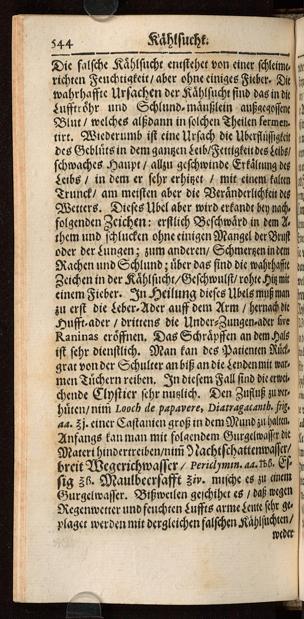 544 Kählsucht.
Die falsche Kählsucht entstehet von einer schleime-
richten Feuchtigkeit/ aber ohne einiges Fieber. Die
wahrhaffte Ursachen der Kählsucht sind das in die
Lufftröhr und Schlund-mäußlein außgegossene
Blut/ welches alßdann in solchen Theilen fermen-
tirt. Wiederumb ist eine Ursach die Uberflüssigkeit
des Geblüts in dem gantzen Leib/ Fettigkeit des Leibs/
schwaches Haupt/ allzu geschwinde Erkältung des
Leibs/ in dem er sehr erhitzet/ mit einem kalten
Trunck/ am meisten aber die Veränderlichkeit des
Wetters. Dieses Ubel aber wird erkandt bey nach-
folgenden Zeichen: erstlich Beschwärd in dem A-
them und schlucken ohne einigen Mangel der Brust
oder der Lungen; zum anderen/ Schmertzen in dem
Rachen und Schlund; über das sind die wahrhaffte
Zeichen in der Kählsucht/ Geschwulst/ rohte Hitz mit
einem Fieber. In Heilung dieses Ubels muß man
zu erst die Leber-Ader auff dem Arm/ hernach die
Hufft-ader/ drittens die Under-Zungen-ader sive
Raninas eröffnen. Das Schräpffen an dem Hals
ist sehr dienstlich. Man kan des Patienten Rück-
grat von der Schulter an biß an die Lenden mit war-
men Tüchern reiben. In diesem Fall sind die erwei-
chende Clystier sehr nutzlich. Den Zufluß zu ver-
hüten/ nim̃ Looch de papavere, Diatragacanth. frig.
aa. ʒj. einer Castanien groß in dem Mund zu halten.
Anfangs kan man mit folgendem Gurgelwasser die
Materi hindertreiben/ nim̃ Nachtschattenwasser/
breit Wegerichwasser/ Periclymin. aa. Es-
sig Maulbeersafft mische es zu einem
Gurgelwasser. Bißweilen geschihet es/ daß wegen
Regenwetter und feuchten Luffts arme Leute sehr ge-
plaget werden mit dergleichen falschen Kählsuchten/
weder